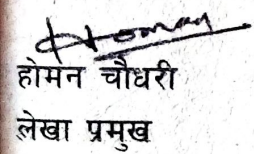 होमन चौधरी
लेखा प्रमुख